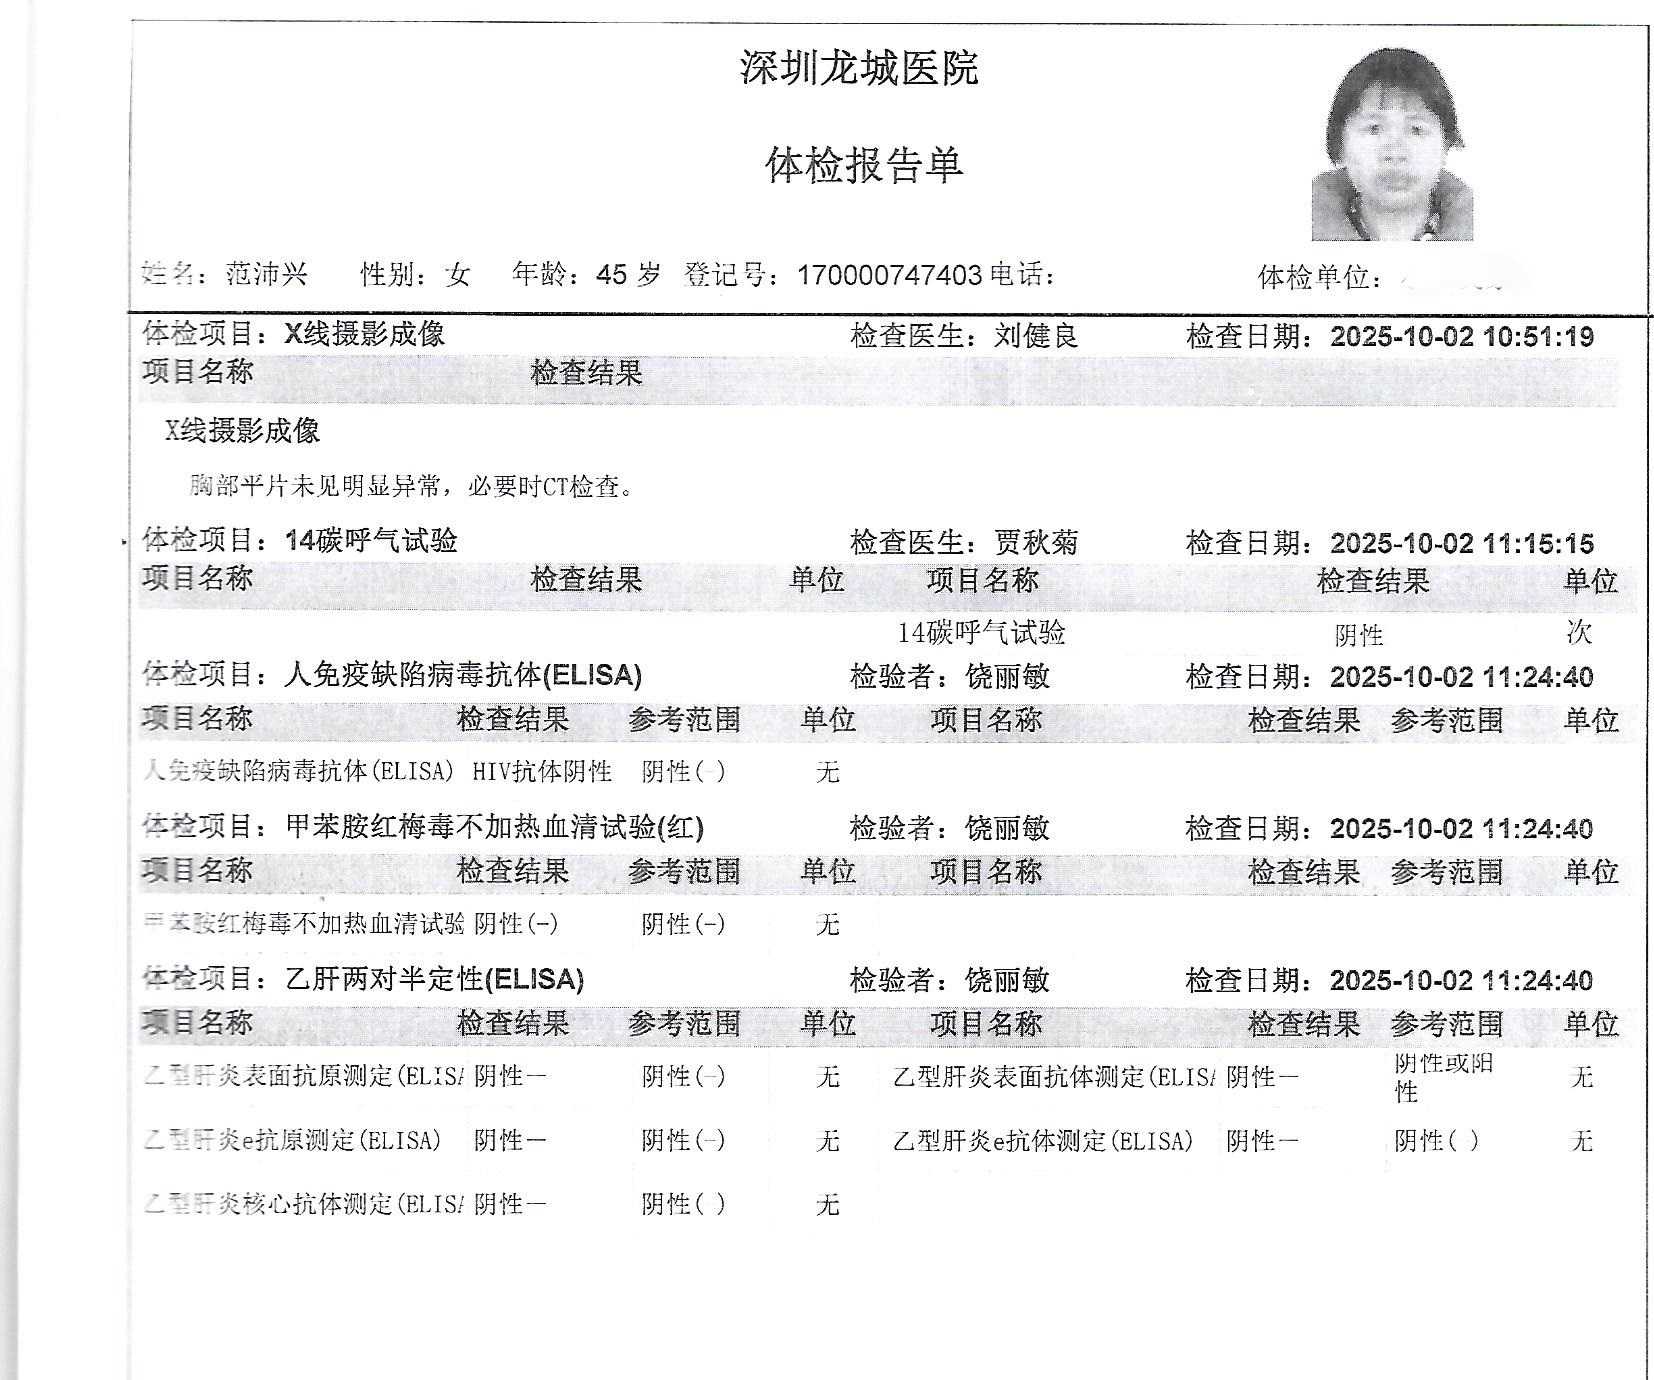 深圳龙城医院
体检报告单
姓名：范沛兴 性别：女 年龄：45 岁 登记号：170000747403 电话： 体检单位：
体检项目：X线摄影成像 检查医生：刘健良 检查日期：2025-10-02 10:51:19
项目名称 检查结果
X线摄影成像
胸部平片未见明显异常，必要时CT检查。
体检项目：14碳呼气试验 检查医生：贾秋菊 检查日期：2025-10-02 11:15:15
项目名称 检查结果 单位 项目名称 检查结果 单位
14碳呼气试验 阴性 次
体检项目：人免疫缺陷病毒抗体(ELISA) 检验者：饶丽敏 检查日期：2025-10-02 11:24:40
项目名称 检查结果 参考范围 单位 项目名称 检查结果 参考范围 单位
人免疫缺陷病毒抗体(ELISA) HIV抗体阴性 阴性(-) 无
体检项目：甲苯胺红梅毒不加热血清试验(红) 检验者：饶丽敏 检查日期：2025-10-02 11:24:40
项目名称 检查结果 参考范围 单位 项目名称 检查结果 参考范围 单位
甲苯胺红梅毒不加热血清试验 阴性(-) 阴性(-) 无
体检项目：乙肝两对半定性(ELISA) 检验者：饶丽敏 检查日期：2025-10-02 11:24:40
项目名称 检查结果 参考范围 单位 项目名称 检查结果 参考范围 单位
乙型肝炎表面抗原测定(ELISA 阴性- 阴性(-) 无 乙型肝炎表面抗体测定(ELISA 阴性- 阴性或阳性 无
乙型肝炎e抗原测定(ELISA) 阴性- 阴性(-) 无 乙型肝炎e抗体测定(ELISA) 阴性- 阴性( ) 无
乙型肝炎核心抗体测定(ELISA 阴性- 阴性( ) 无